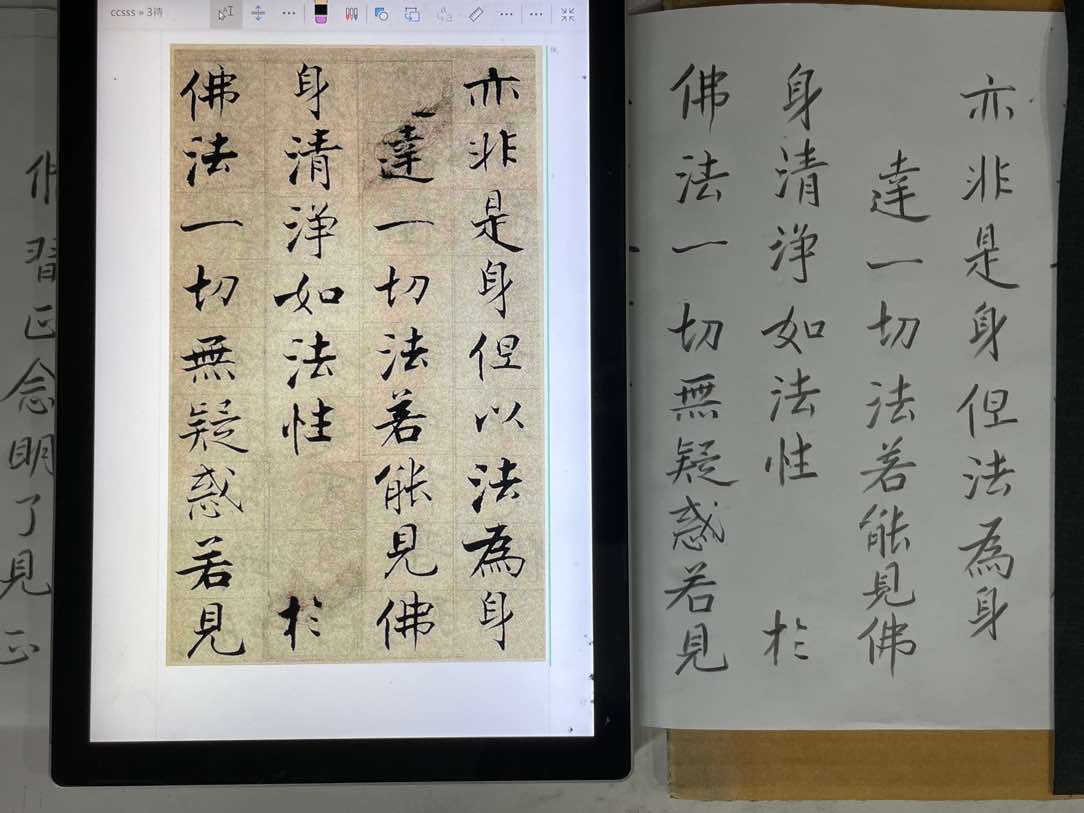 ccsss » 3待
亦非是身但以法為身
達一切法若能見佛
身清淨如法性 於
佛法一切無疑惑若見
亦非是身但法為身
達一切法若能見佛
身清淨如法性 於
佛法一切無疑惑若見
習正念明了見正